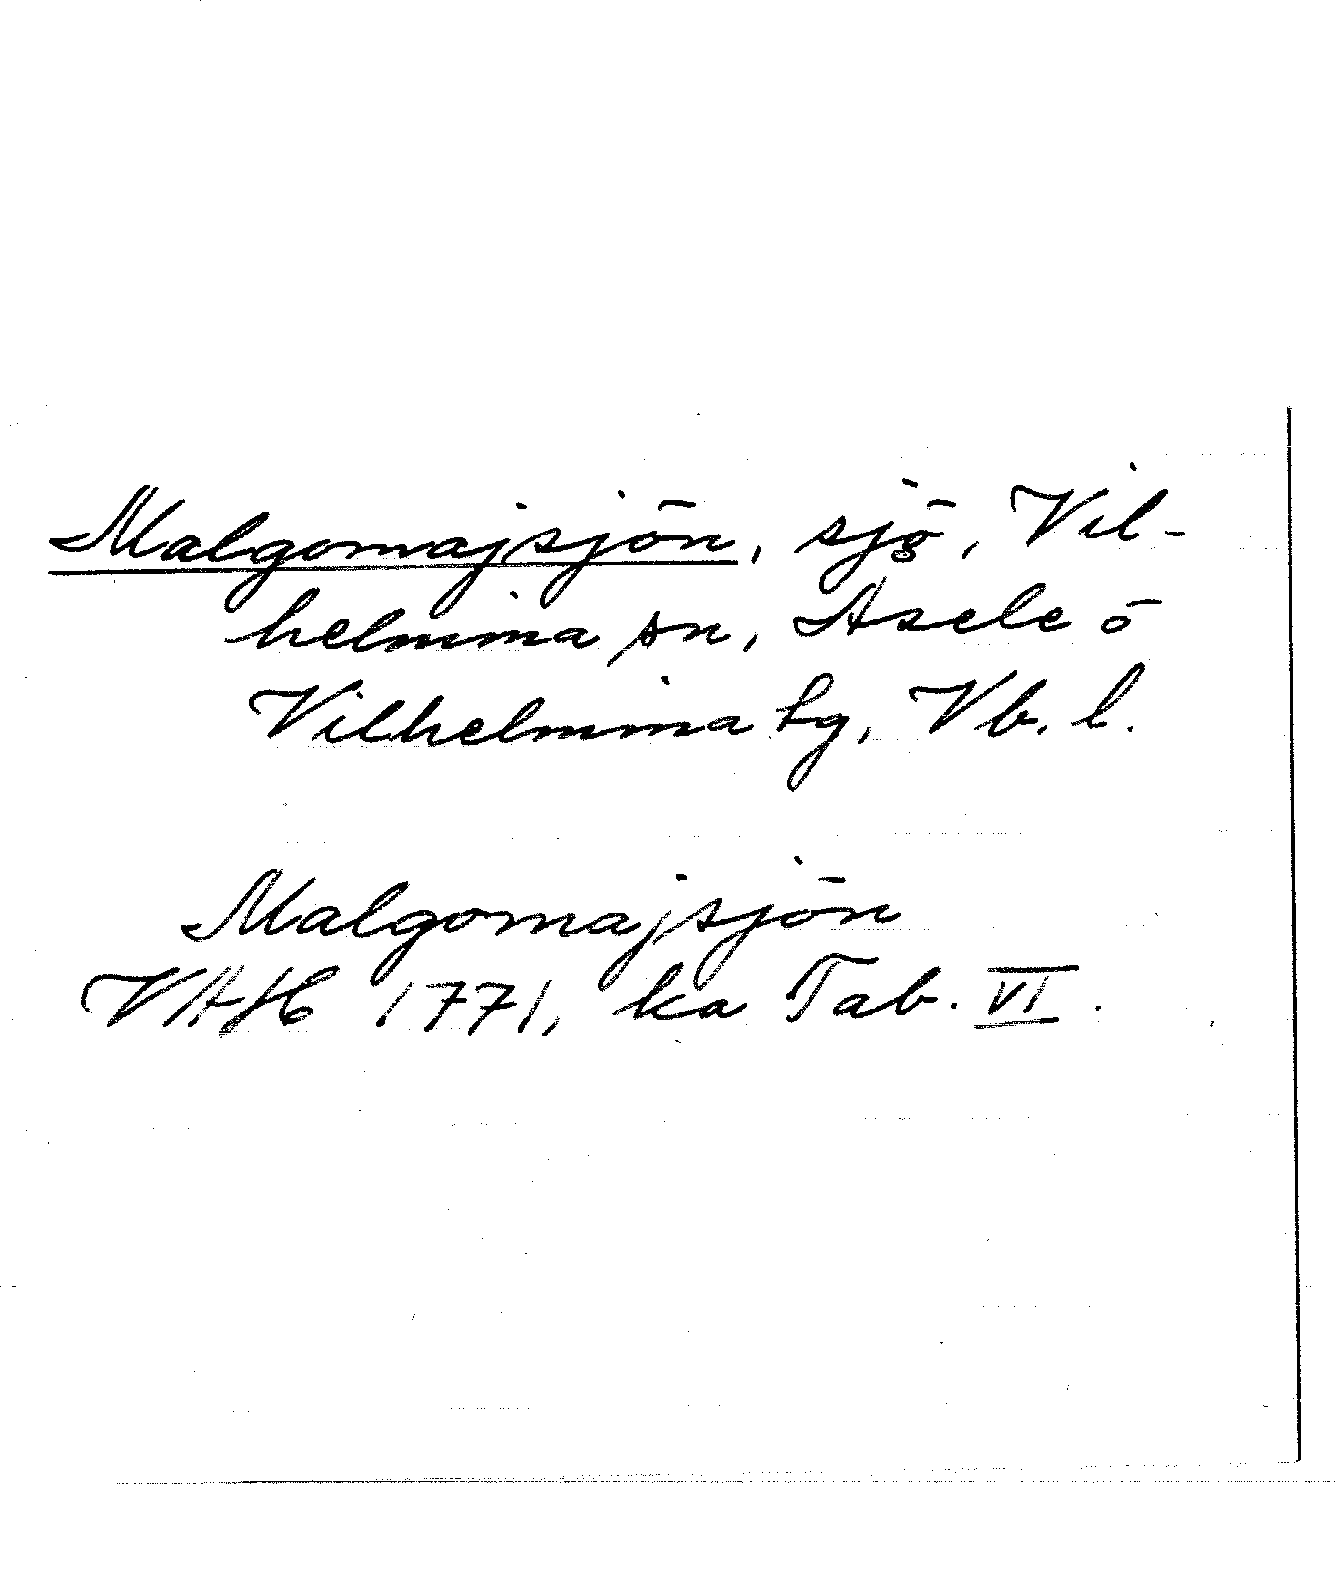 Malgomajsjön, sjö, Vil-
helmina sn, Åsele ö
Vilhelmina tg, Vb. l.
Malgomajsjön
VAH 1771, ka Tab. VI.